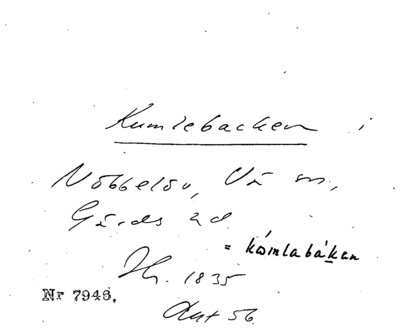 Humlebacken i
Nöbbelöv, Vä sn,
Gärds hd
= hòmlabákan
Jh. 1835
Nr 7946.
Ant 56